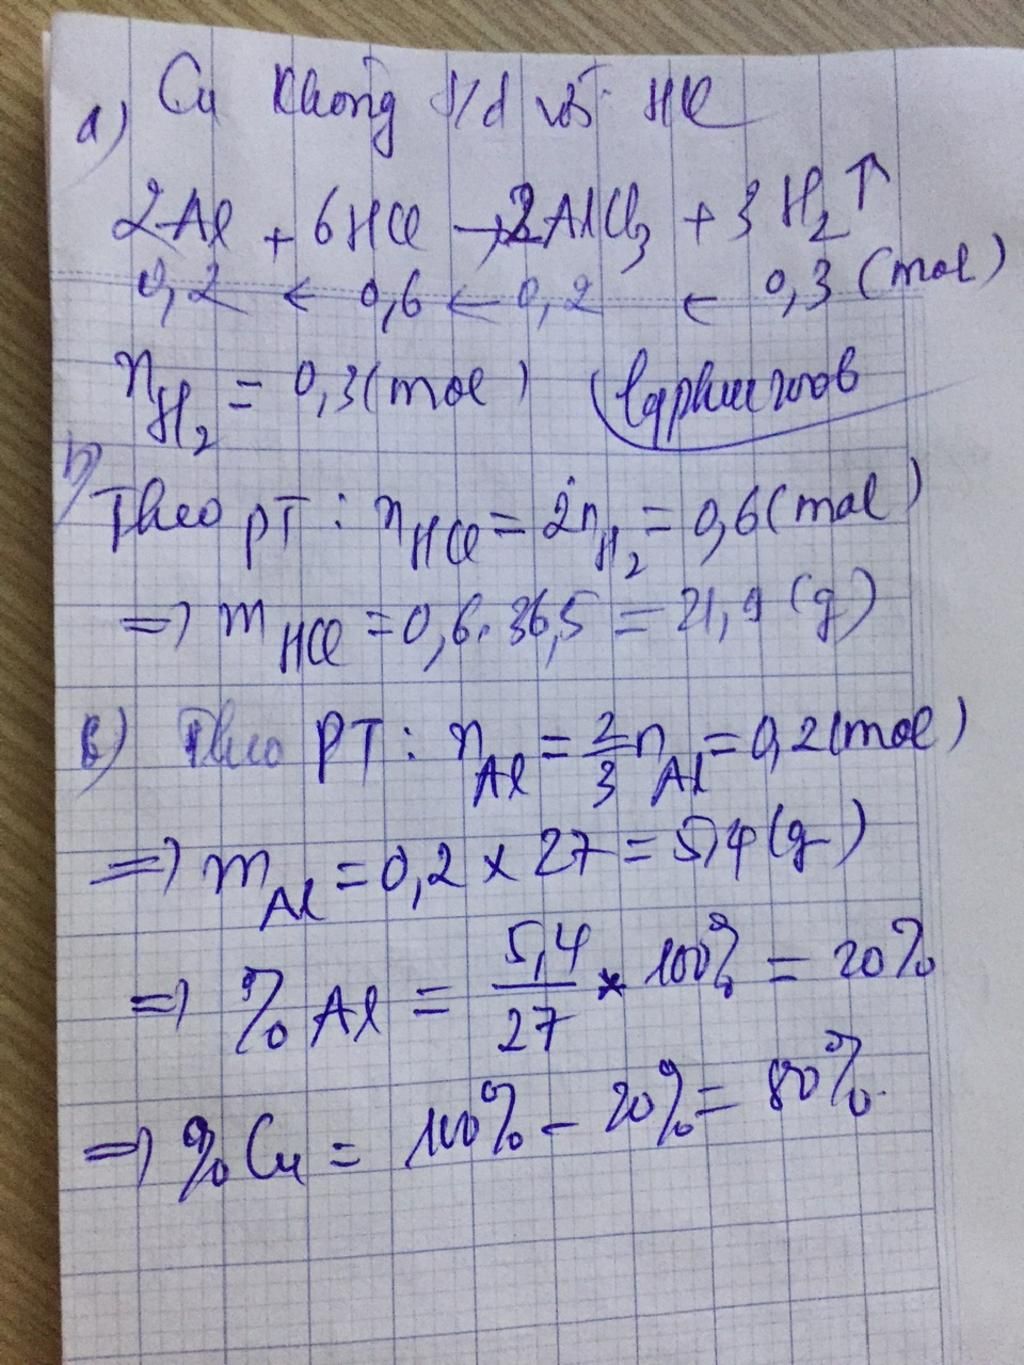 a) Cu không t/d với HCl
2Al + 6HCl → 2AlCl₃ + 3H₂↑
0,2 ← 0,6 ← 0,2 ← 0,3 (mol)
n_H₂ = 0,3 (mol)
b) Theo PT: n_HCl = 2n_H₂ = 0,6 (mol)
=> m_HCl = 0,6.36,5 = 21,9 (g)
c) Theo PT: n_Al = 2/3 n_Al = 0,2 (mol)
=> m_Al = 0,2 x 27 = 5,4 (g)
=> % Al = 5,4/27 * 100% = 20%
=> % Cu = 100% - 20% = 80%.